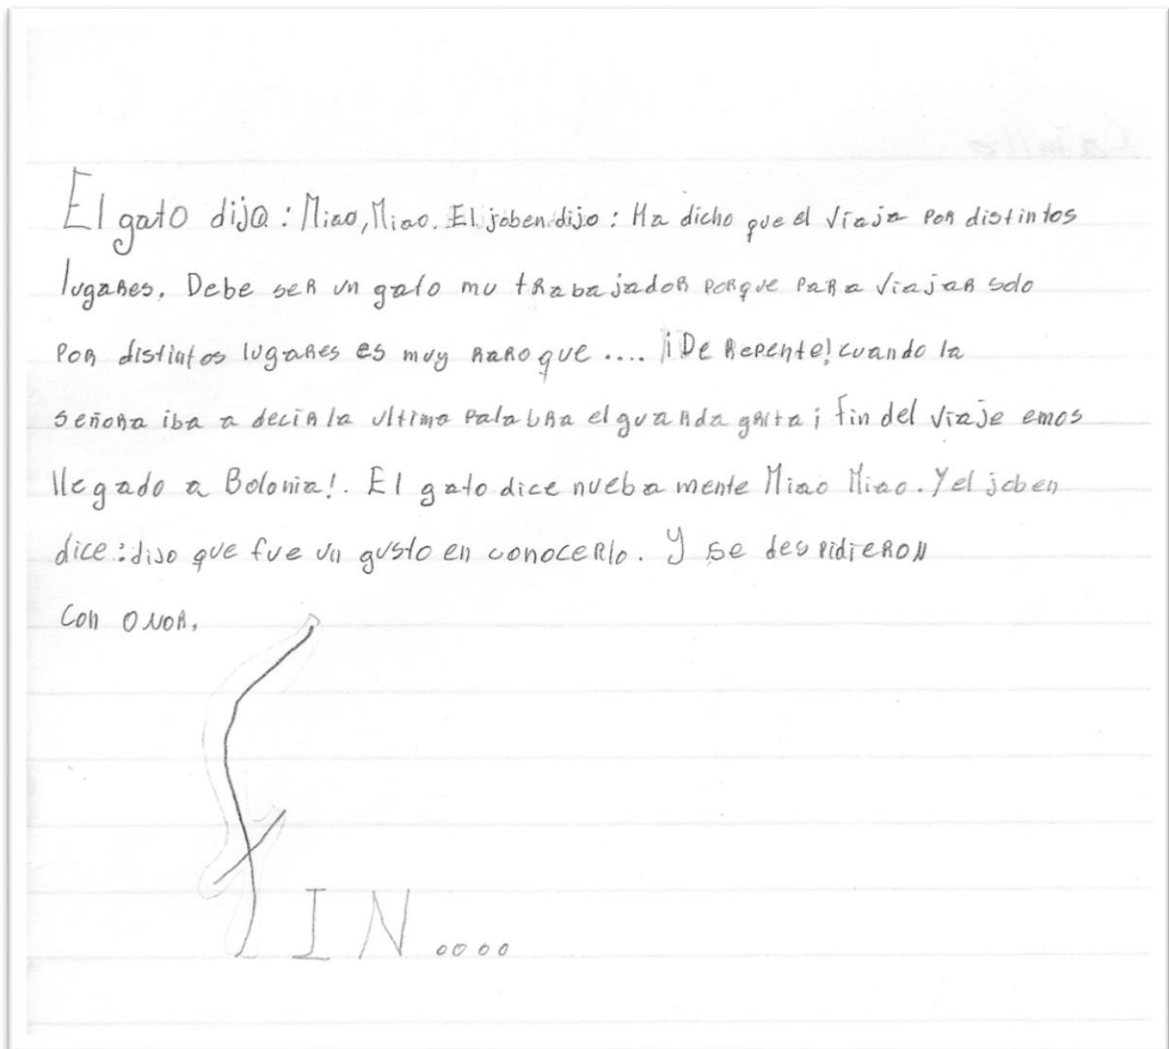 El gato dijo: Miao, Miao. El joben dijo: Ha dicho que el viaja por distintos
lugares. Debe ser un gato mu trabajador porque para viajar solo
por distintos lugares es muy raro que .... ¡De repente! cuando la
señora iba a decir la ultima palabra el guarda grita ¡ fin del viaje emos
llegado a Bolonia!. El gato dice nueba mente Miao Miao. Y el joben
dice: dijo que fue un gusto en conocerlo. Y se despidieron
con onor.
FIN....